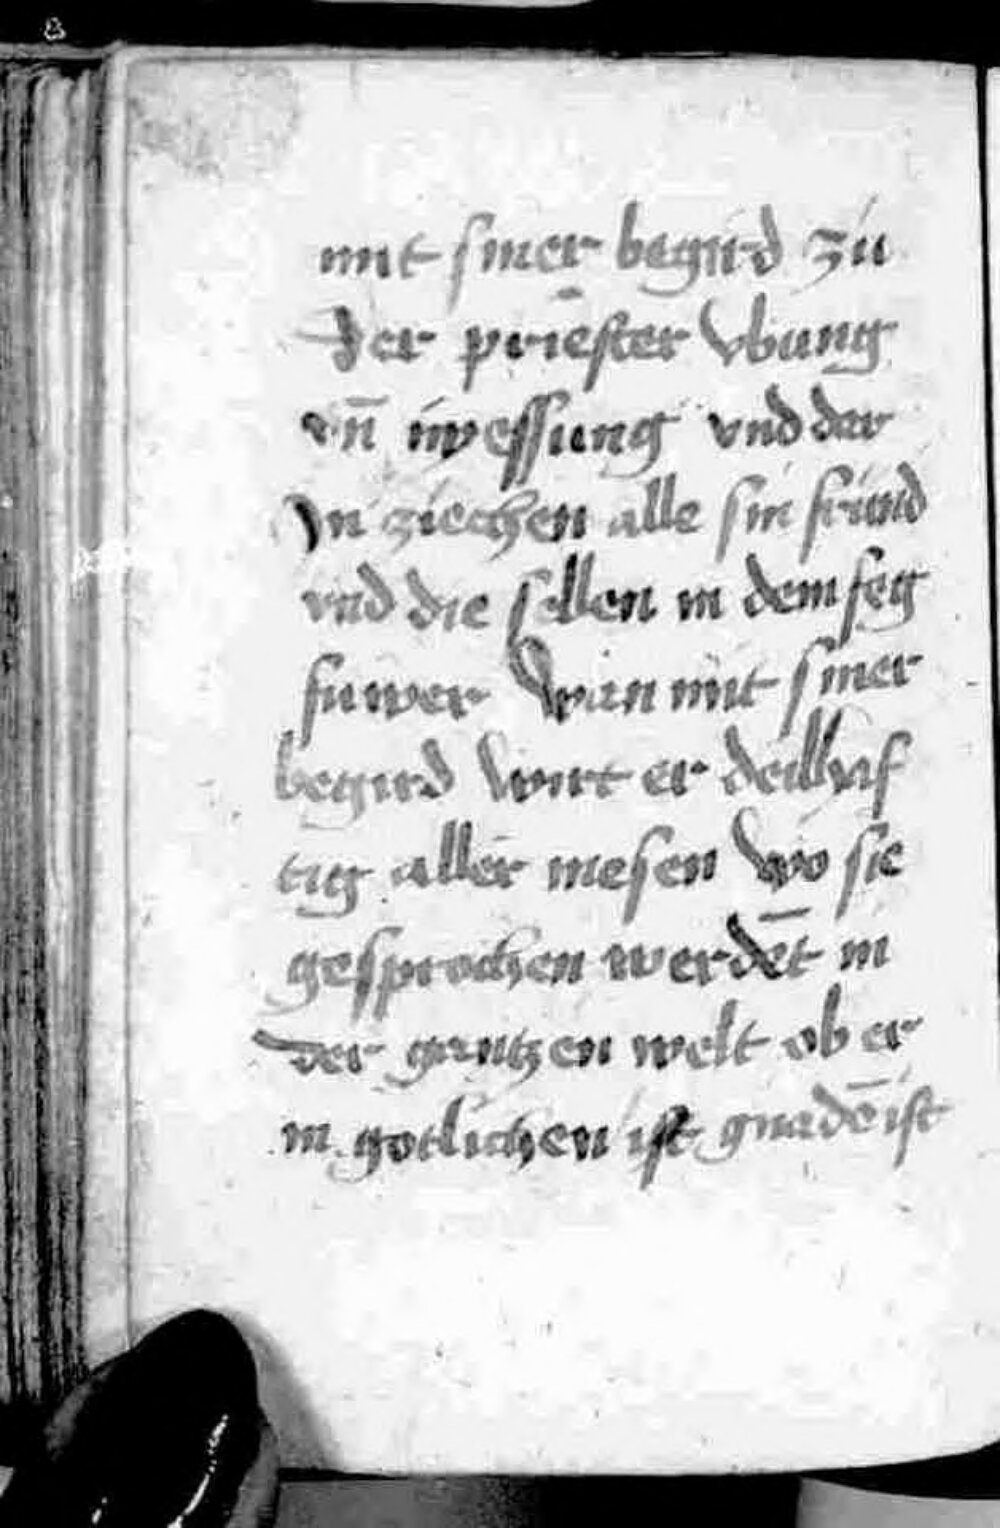 8
mit siner begird zu
der priester vbung
vn̄ niessung vnd dar
In ziechen alle sin fründ
vnd die sellen in dem feg
fuwer wan mit siner
begird wirt er deilhaf
tig aller mesen wo sie
gesprochen werdēt in
der gantzen welt ob er
in gotlichen ist gnadē ist